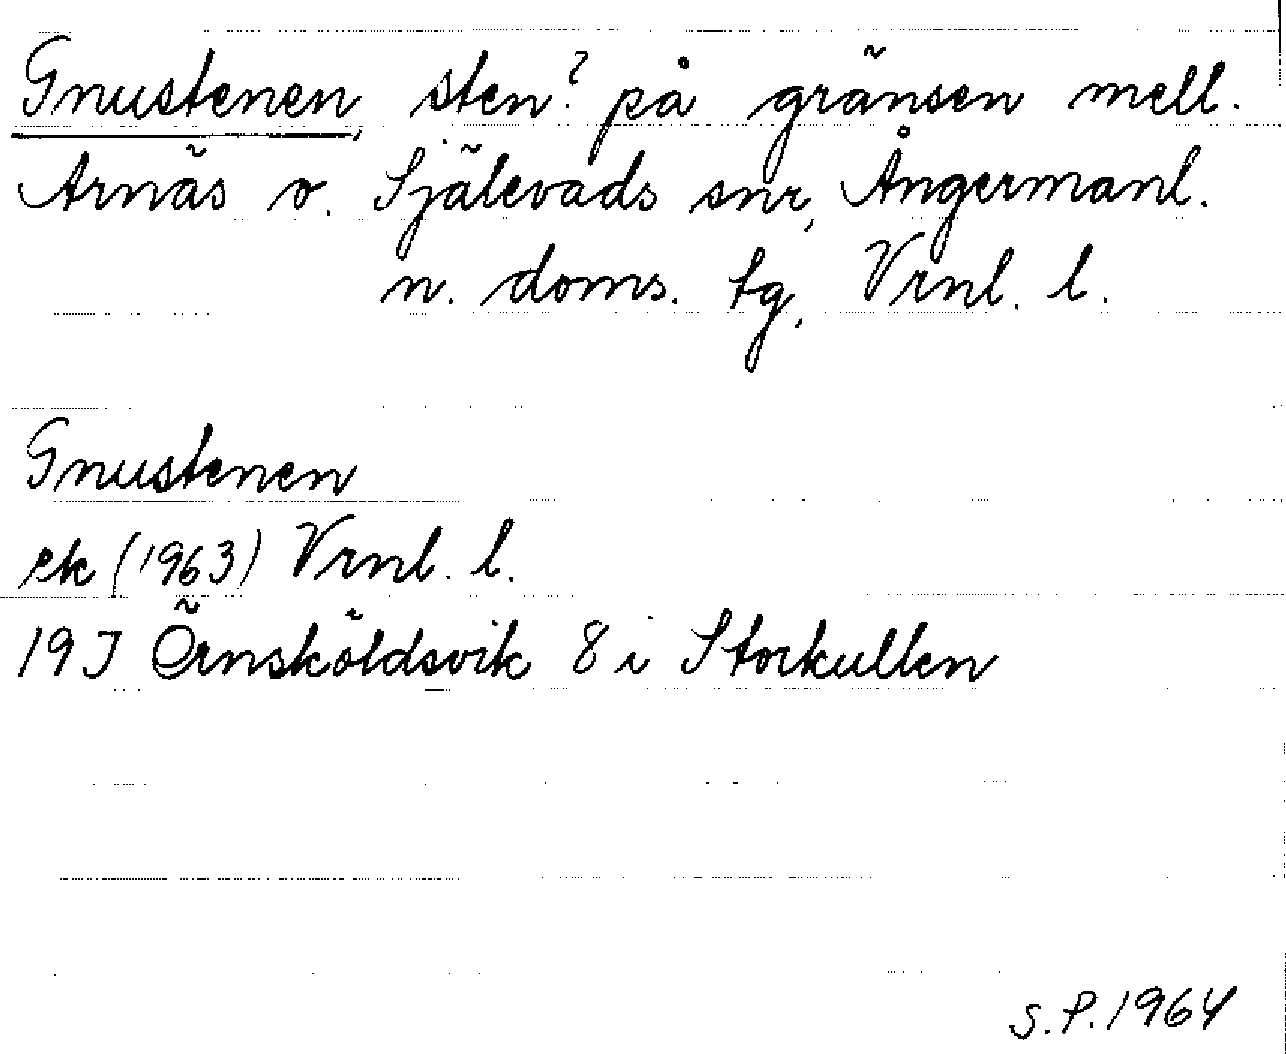 Gnustenen, sten? på gränsen mell.
Arnäs o. Själevads snr, Ångermanl.
n. doms. tg, Vrnl. l.
Gnustenen
ek (1963) Vrnl. l.
19J Örnsköldsvik 8 i Storkullen
S.P. 1964